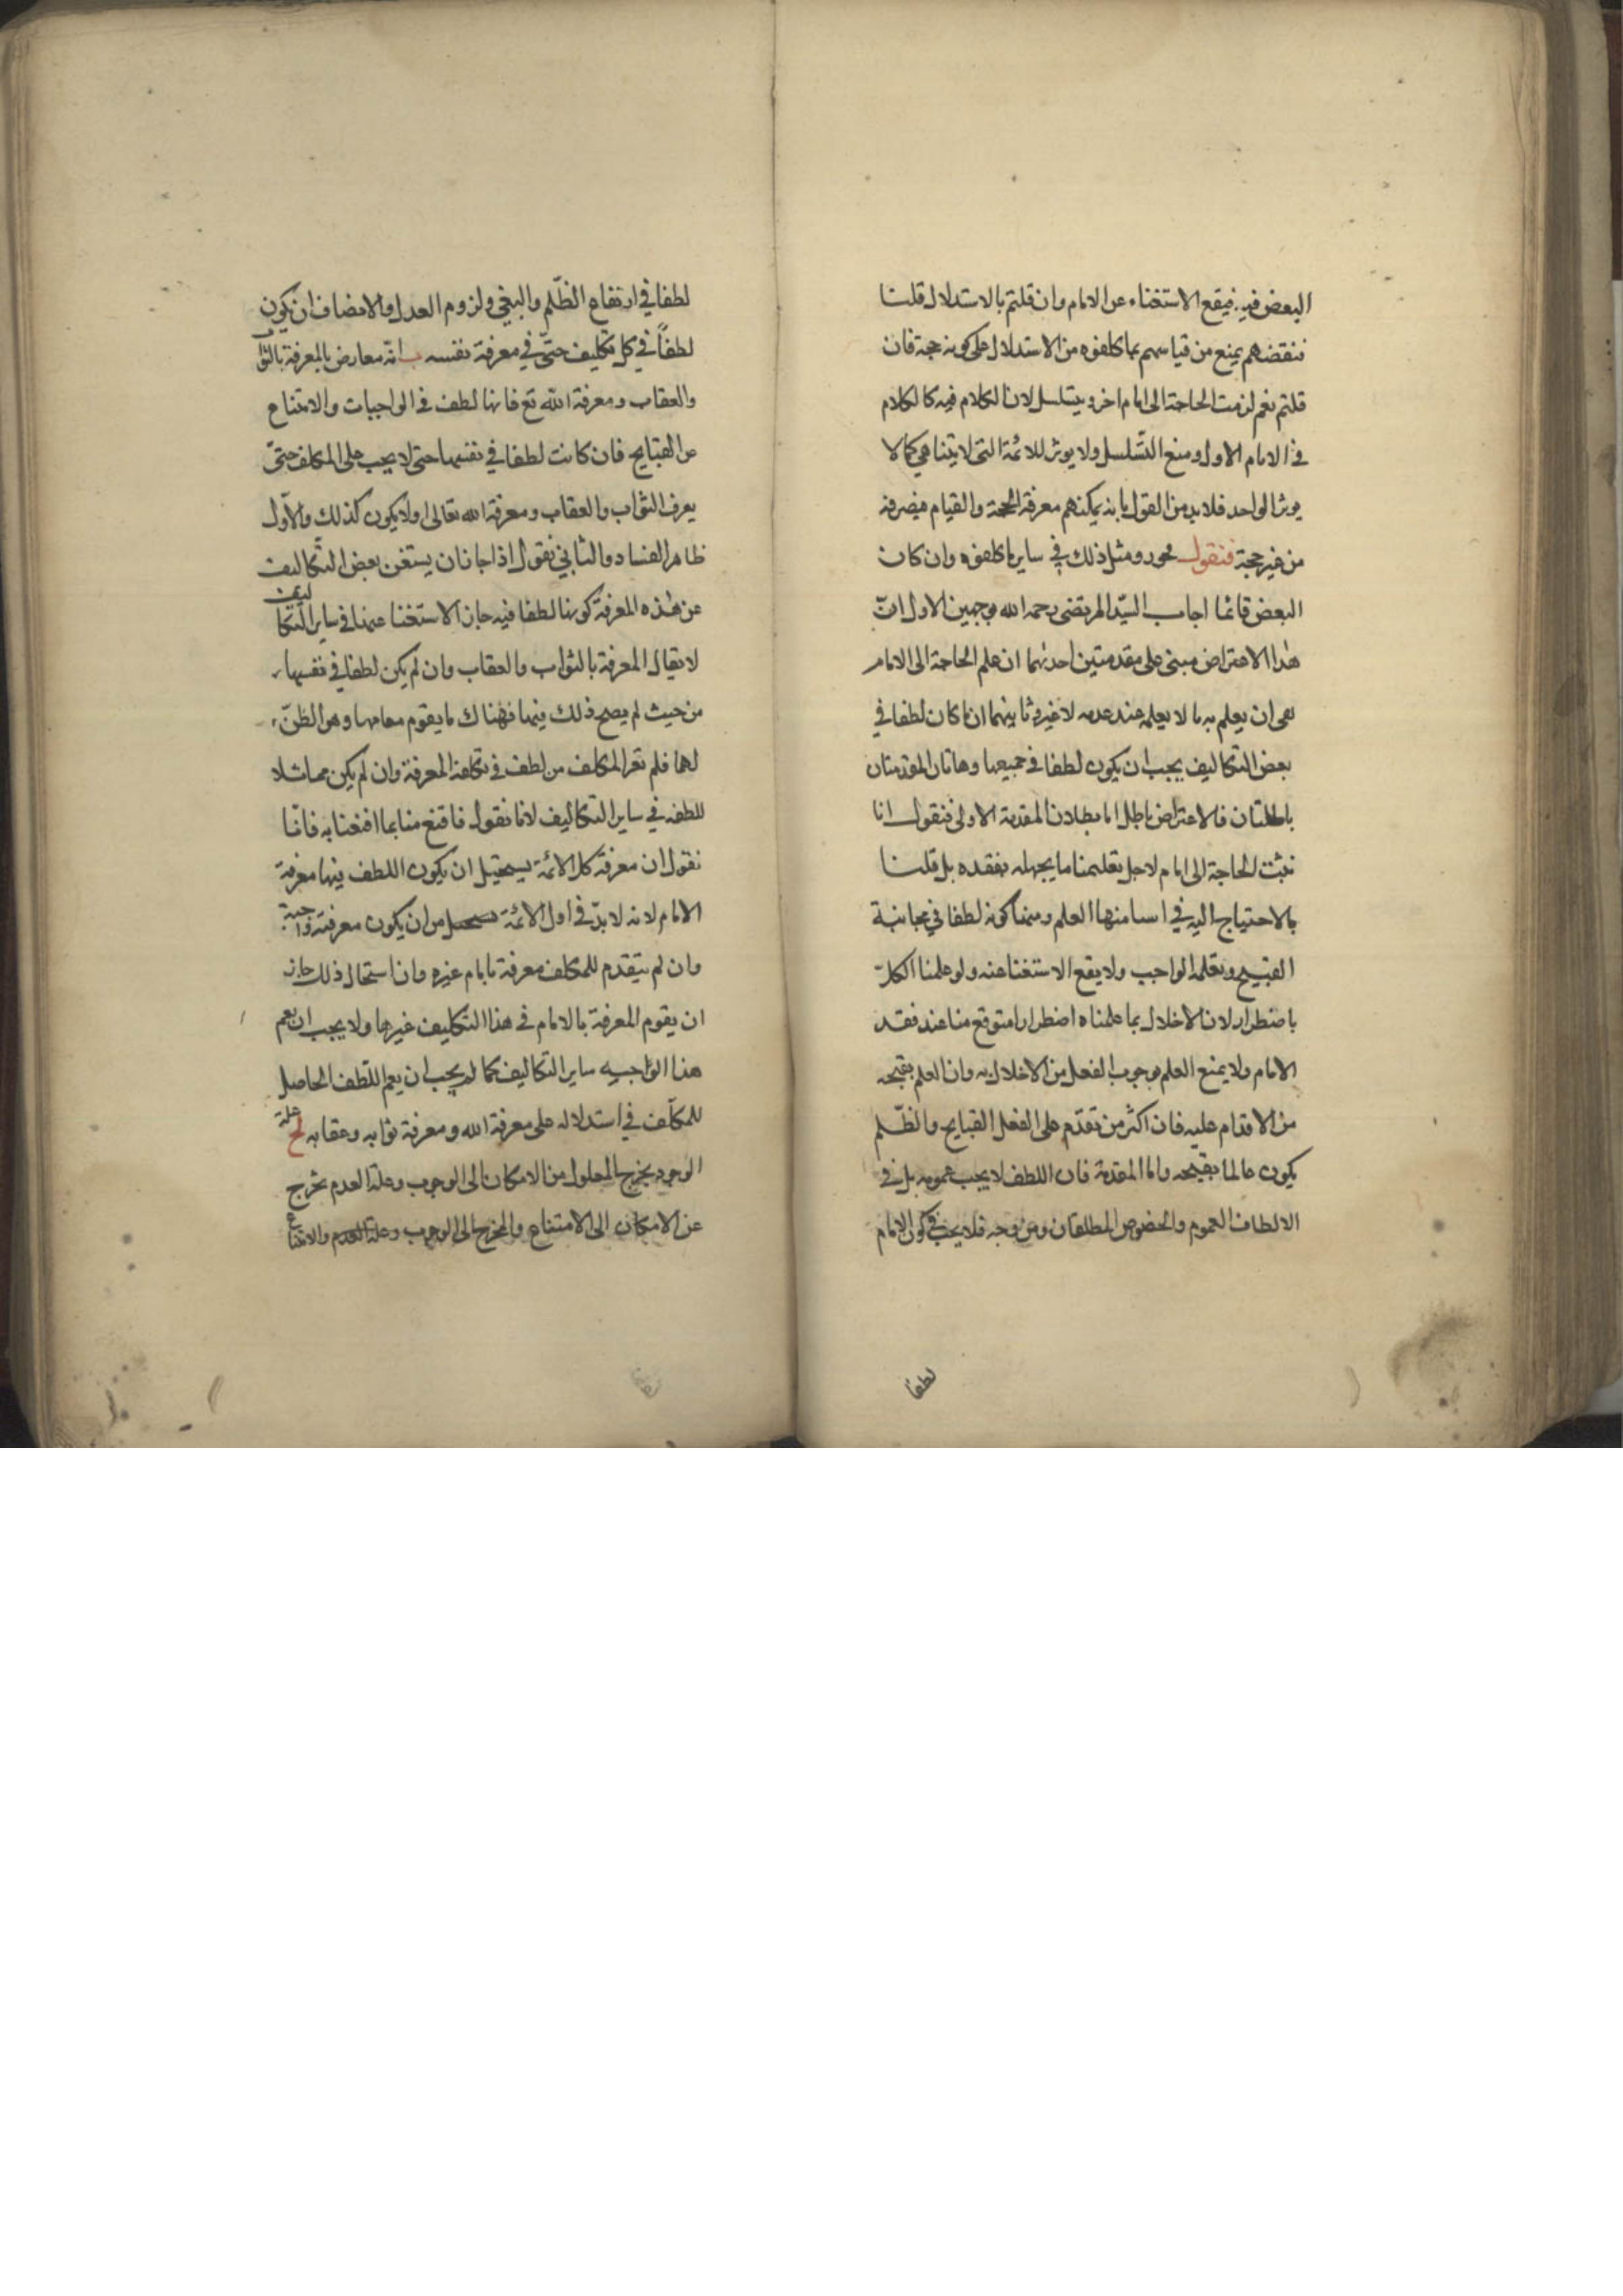 البعض فيه فيقع الاستغناء عن الامام وان قلتم بالاستدلال قلنا
فنقضهم يمنع من قياسهم بما كلفوه من الاستدلال على كونه حجة فان
قلتم نعم لزمت الحاجة الى امام اخر ويتسلسل لان الكلام فيه كالكلام
فى الامام الاول ومنع التسلسل ولا يوثر للائمة التى لا يتناهى كما لا
يوثر الواحد فلا بد من القول بانه يمكنهم معرفة الحجة والقيام فيصرفه
من غير حجة فنقول فجوزوا مثل ذلك في ساير ما كلفوه وان كان
البعض قائما اجاب السيّد المرتضى رحمه الله بوجهين الاول انّ
هذا الاعتراض مبنى على مقدمتين احدٮهما ان علم الحاجة الى الامام
هى ان يعلم به ما لا يعلم عند عدمه لا غير وثانيهما ان ما كان لطفا في
بعض التكاليف يجب ان يكون لطفا في جميعها وهاتان المقدمتان
باطلتان فالاعتراض باطل اما بطلان المقدمة الاولى فنقول انا
نثبت الحاجة الى امام لاجل تعليمنا ما يجهله بفقده بل قلنا
بالاحتياج اليه في اسما منها العلم ومنها كونه لطفا في مجانبة
القبيح وبعلمه الواجب ولا يقع الاستغنا عنه ولو علمنا الكلّ
باضطرار لان الاخلال بما علمناه اضطرارا متوقع منا عند فقد
الامام ولا يمنع العلم بوجوب الفعل من الاخلال به وان العلم بقبحه
من الاقدام عليه فان اكثر من تقدّم على الفعل القبايح والظّلم
يكون عالما بقبحه واما المقدمة فان اللطف لا يجب عمومه بل في
الالطاف العموم والخصوص المطلقان ومن وجه فلا يجب في كون الامام
لطفا
لطفا في ارتفاع الظّلم والبغى ولزوم العدل والانصاف ان يكون
لطفاً في كل تكليف حتىّ في معرفة نفسه ب انّه معارض بالمعرفة بالثواب
والعقاب ومعرفة الله تع فانها لطف فى الواجبات والامتناع
عن القبايح فان كانت لطفا في نفسها حتى لا يجب على المكلف حتىّ
يعرف الثواب والعقاب ومعرفة الله تعالى اولا يكون كذلك والاوّل
ظاهر الفساد والثاني نقول اذا جاز ان يستغن بعض التكاليف
عن هذه المعرفة كونها لطفا فيه جاز الاستغنا عنها في ساير التكاليف
لا يقال المعرفة بالثواب والعقاب وان لم يكن لطفا في نفسها
من حيث لم يصح ذلك فيها فهناك ما يقوم مقامها وهو الظنّ
لهما فلم تعر المكلف من لطف في تكلفه المعرفة وان لم يكن مماثلا
للطفه في ساير التكاليف لانا نقول فاقنع منا بما اقنعنا به فانّا
نقول ان معرفة كل الائمة يستحيل ان يكون اللطف فيها معرفة
الامام لانه لا بدّ في اول الائمة من ان يكون معرفته واجبة
وان لم يتقدم للمكلف معرفة بامام غيره وان استحال ذلك جاز
ان يقوم المعرفة بالامام في هذا التكليف غيرها ولا يجب ان يعم
هذا الواجبيه ساير التكاليف كما لم يجب ان يعم اللطف الحاصل
للمكلّف في استدلاله على معرفة الله ومعرفة ثوابه وعقابه لح علة
الوجود يخرج المعلول من الامكان الى الوجوب وعلة العدم تخرج
عن الامكان الى الامتناع والمخرج الى الوجوب وعلة العدم والامتناع